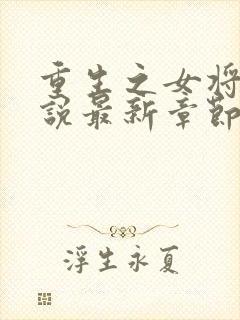 重生之女将
說最新章節
浮生永夏